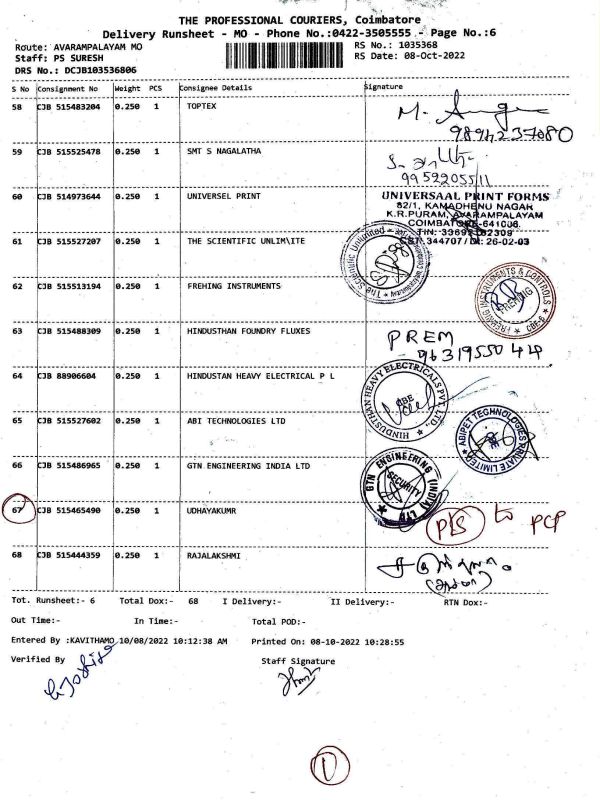 THE PROFESSIONAL COURIERS, Coimbatore
Delivery Runsheet - MO - Phone No.:0422-3505555 - Page No.:6
Route: AVARAMPALAYAM MO
RS No.: 1035368
Staff: PS SURESH
RS Date: 08-Oct-2022
DRS No.: DCJB103536806
S No Consignment No Weight PCS Consignee Details Signature
58 CJB 515483204 0.250 1 TOPTEX
M.
59 CJB 515525478 0.250 1 SMT S NAGALATHA
9952205511
60 CJB 514973644 0.250 1 UNIVERSEL PRINT
UNIVERSAAL PRINT FORMS
82/1, KAMADHENU NAGAR
K.R.PURAM, AVARAMPALAYAM
COIMBATORE-641006.
CST: 344707 / Dt: 26-02-03
61 CJB 515527207 0.250 1 THE SCIENTIFIC UNLIM\ITE
The Scientific Unlimited
62 CJB 515513194 0.250 1 FREHING INSTRUMENTS
INSTRUMENTS & CONTROLS
FREHING
CBE-6
63 CJB 515488309 0.250 1 HINDUSTHAN FOUNDRY FLUXES
PREM
9631955044
64 CJB 88906604 0.250 1 HINDUSTAN HEAVY ELECTRICAL P L
HINDUSTHAN HEAVY ELECTRICALS PVT. LTD.
CBE
65 CJB 515527602 0.250 1 ABI TECHNOLOGIES LTD
ABIPET TECHNOLOGIES PRIVATE LIMITED
66 CJB 515486965 0.250 1 GTN ENGINEERING INDIA LTD
GTN ENGINEERING (INDIA) LTD
SECURITY
67 CJB 515465490 0.250 1 UDHAYAKUMR
PLS to PCP
68 CJB 515444359 0.250 1 RAJALAKSHMI
Tot. Runsheet:- 6 Total Dox:- 68 I Delivery:- II Delivery:- RTN Dox:-
Out Time:- In Time:- Total POD:-
Entered By :KAVITHAMO 10/08/2022 10:12:38 AM Printed On: 08-10-2022 10:28:55
Verified By Staff Signature
1